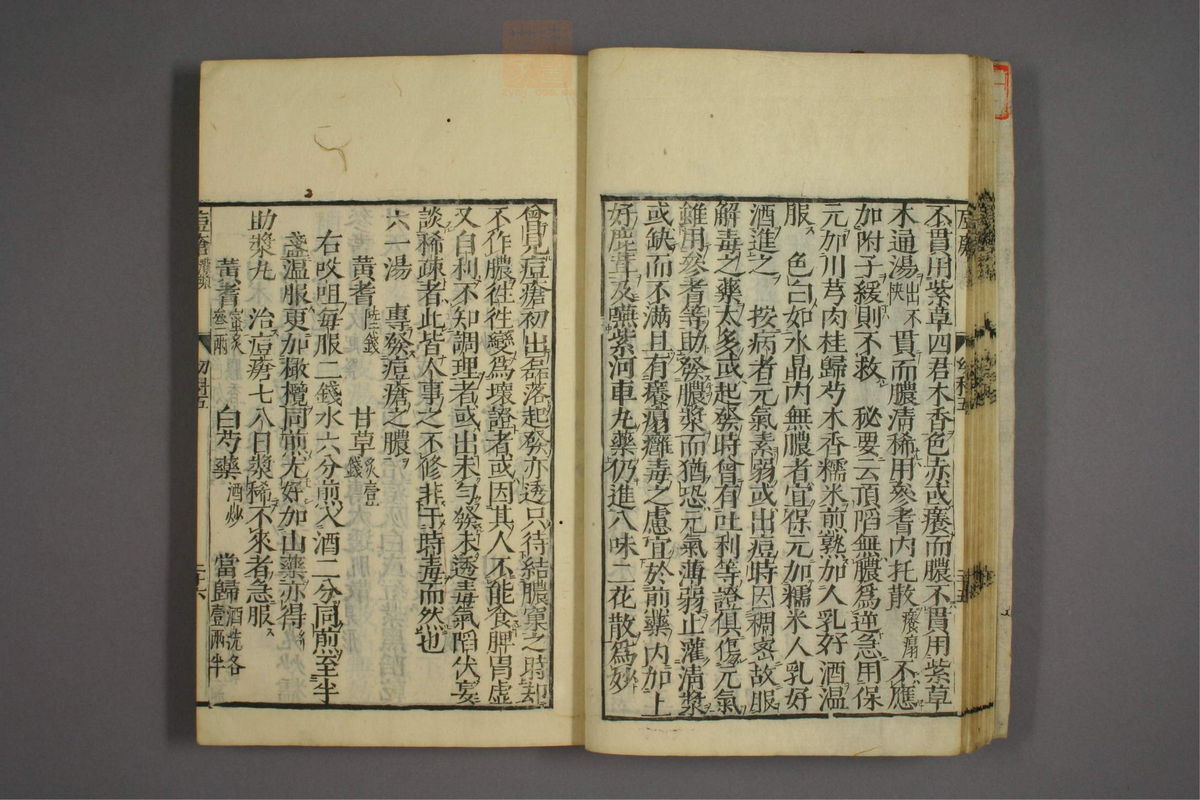 不貫用紫草四君木香色赤或癢而膿不貫用紫草
木通湯出不快貫而膿清稀用參耆內托散癢瘍不應
加附子緩則不救 秘要云頂陷無膿為逆急用保
元加川芎肉桂歸芍木香糯米煎熟加人乳好酒溫
服 色白如水晶內無膿者宜保元加糯米人乳好
酒進之 按病者元氣素弱或出痘時因稠密故服
解毒之藥太多或起發時曾有吐利等證俱傷元氣
雖用參耆等助發膿漿而猶恐元氣薄弱止灌清漿
或缺而不滿且有癢瘍癰毒之慮宜於前藥內加上
好鹿茸及嚥紫河車丸藥仍進八味二花散為妙
幼科五
曾見痘瘡初出磊落起發亦透只待結膿窠之時却
不作膿徃徃變為壞證者或因其人不能食脾胃虛
又自利不知調理者或出未勻發未透毒氣陷伏妄
談稀疎者此皆人事之不修非干時毒而然也
六一湯 專發痘瘡之膿
黃耆 甘草炙壹錢
右㕮咀每服二錢水六分煎入酒二分同煎至半
盞溫服更加橄欖同煎尤好加山藥亦得
助漿丸 治痘瘡七八日漿稀不來者急服
黃耆蜜炙叁兩 白芍藥酒炒 當歸酒洗各壹兩半
痘瘡 幼科五 三十六